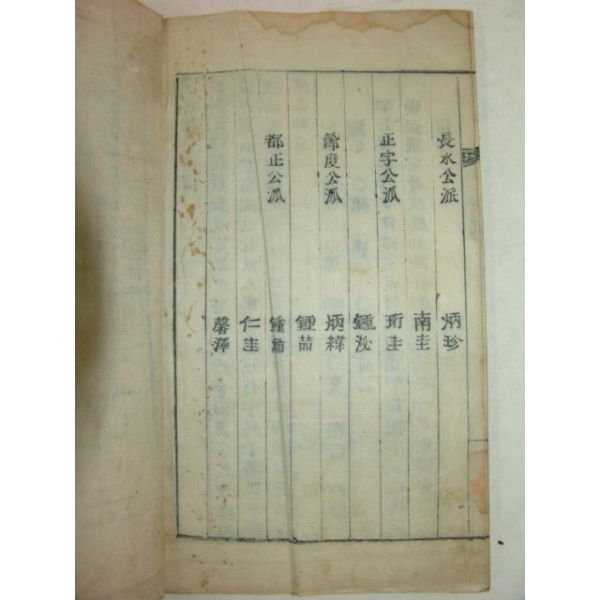 長水公派 炳珍
南圭
正字公派 珩圭
鍾汝
節度公派 炳緯
鍾喆
都正公派 鍾
仁圭
馨澤